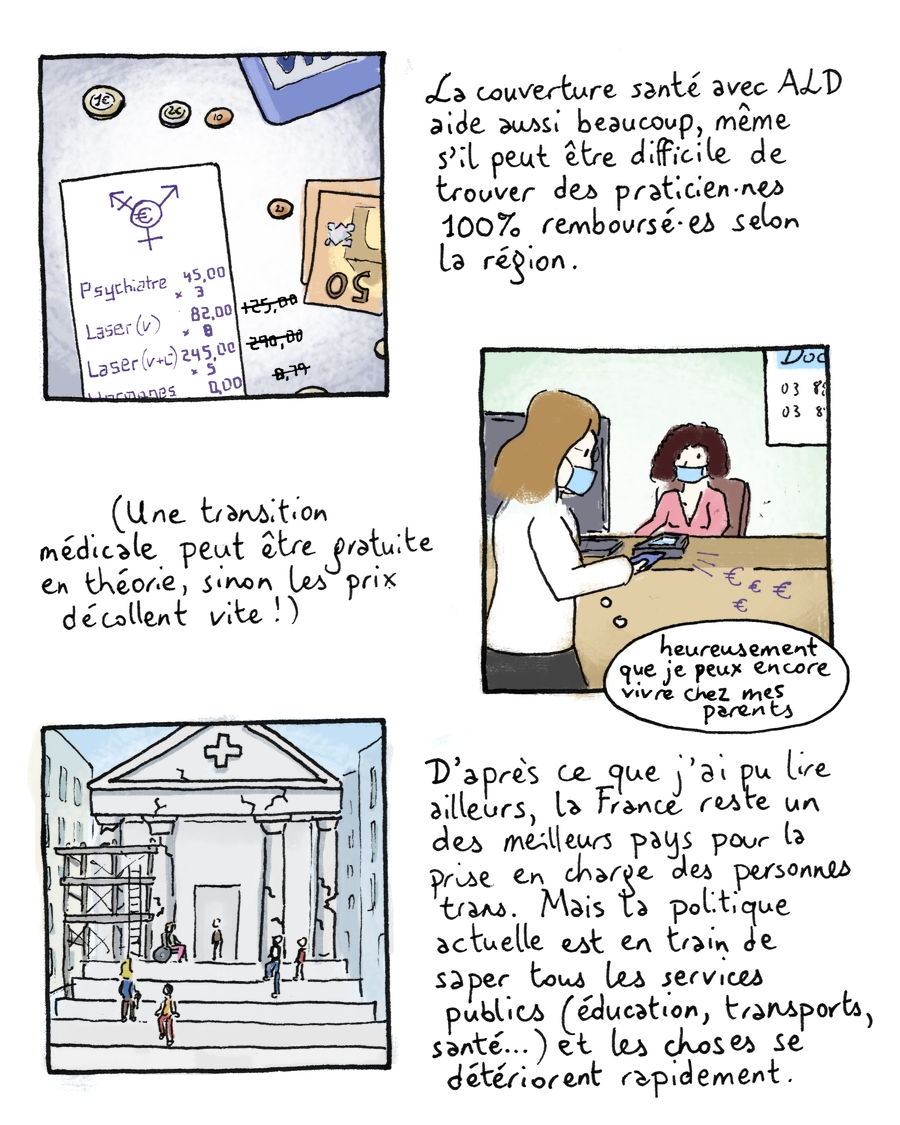 1€
2€
10
La couverture santé avec ALD
aide aussi beaucoup, même
s'il peut être difficile de
trouver des praticien·nes
100% remboursé·es selon
la région.
€
50
Psychiatre 45,00
x 3
Laser (v) 82,00
x 8
Laser (v+c) 245,00
x 5
Hormones 0,00
125,00
290,00
8,79
Doc
03 8
03 8
(Une transition
médicale peut être gratuite
en théorie, sinon les prix
décollent vite !)
€ € € €
heureusement
que je peux encore
vivre chez mes
parents
D'après ce que j'ai pu lire
ailleurs, la France reste un
des meilleurs pays pour la
prise en charge des personnes
trans. Mais la politique
actuelle est en train de
saper tous les services
publics (éducation, transports,
santé...) et les choses se
détériorent rapidement.